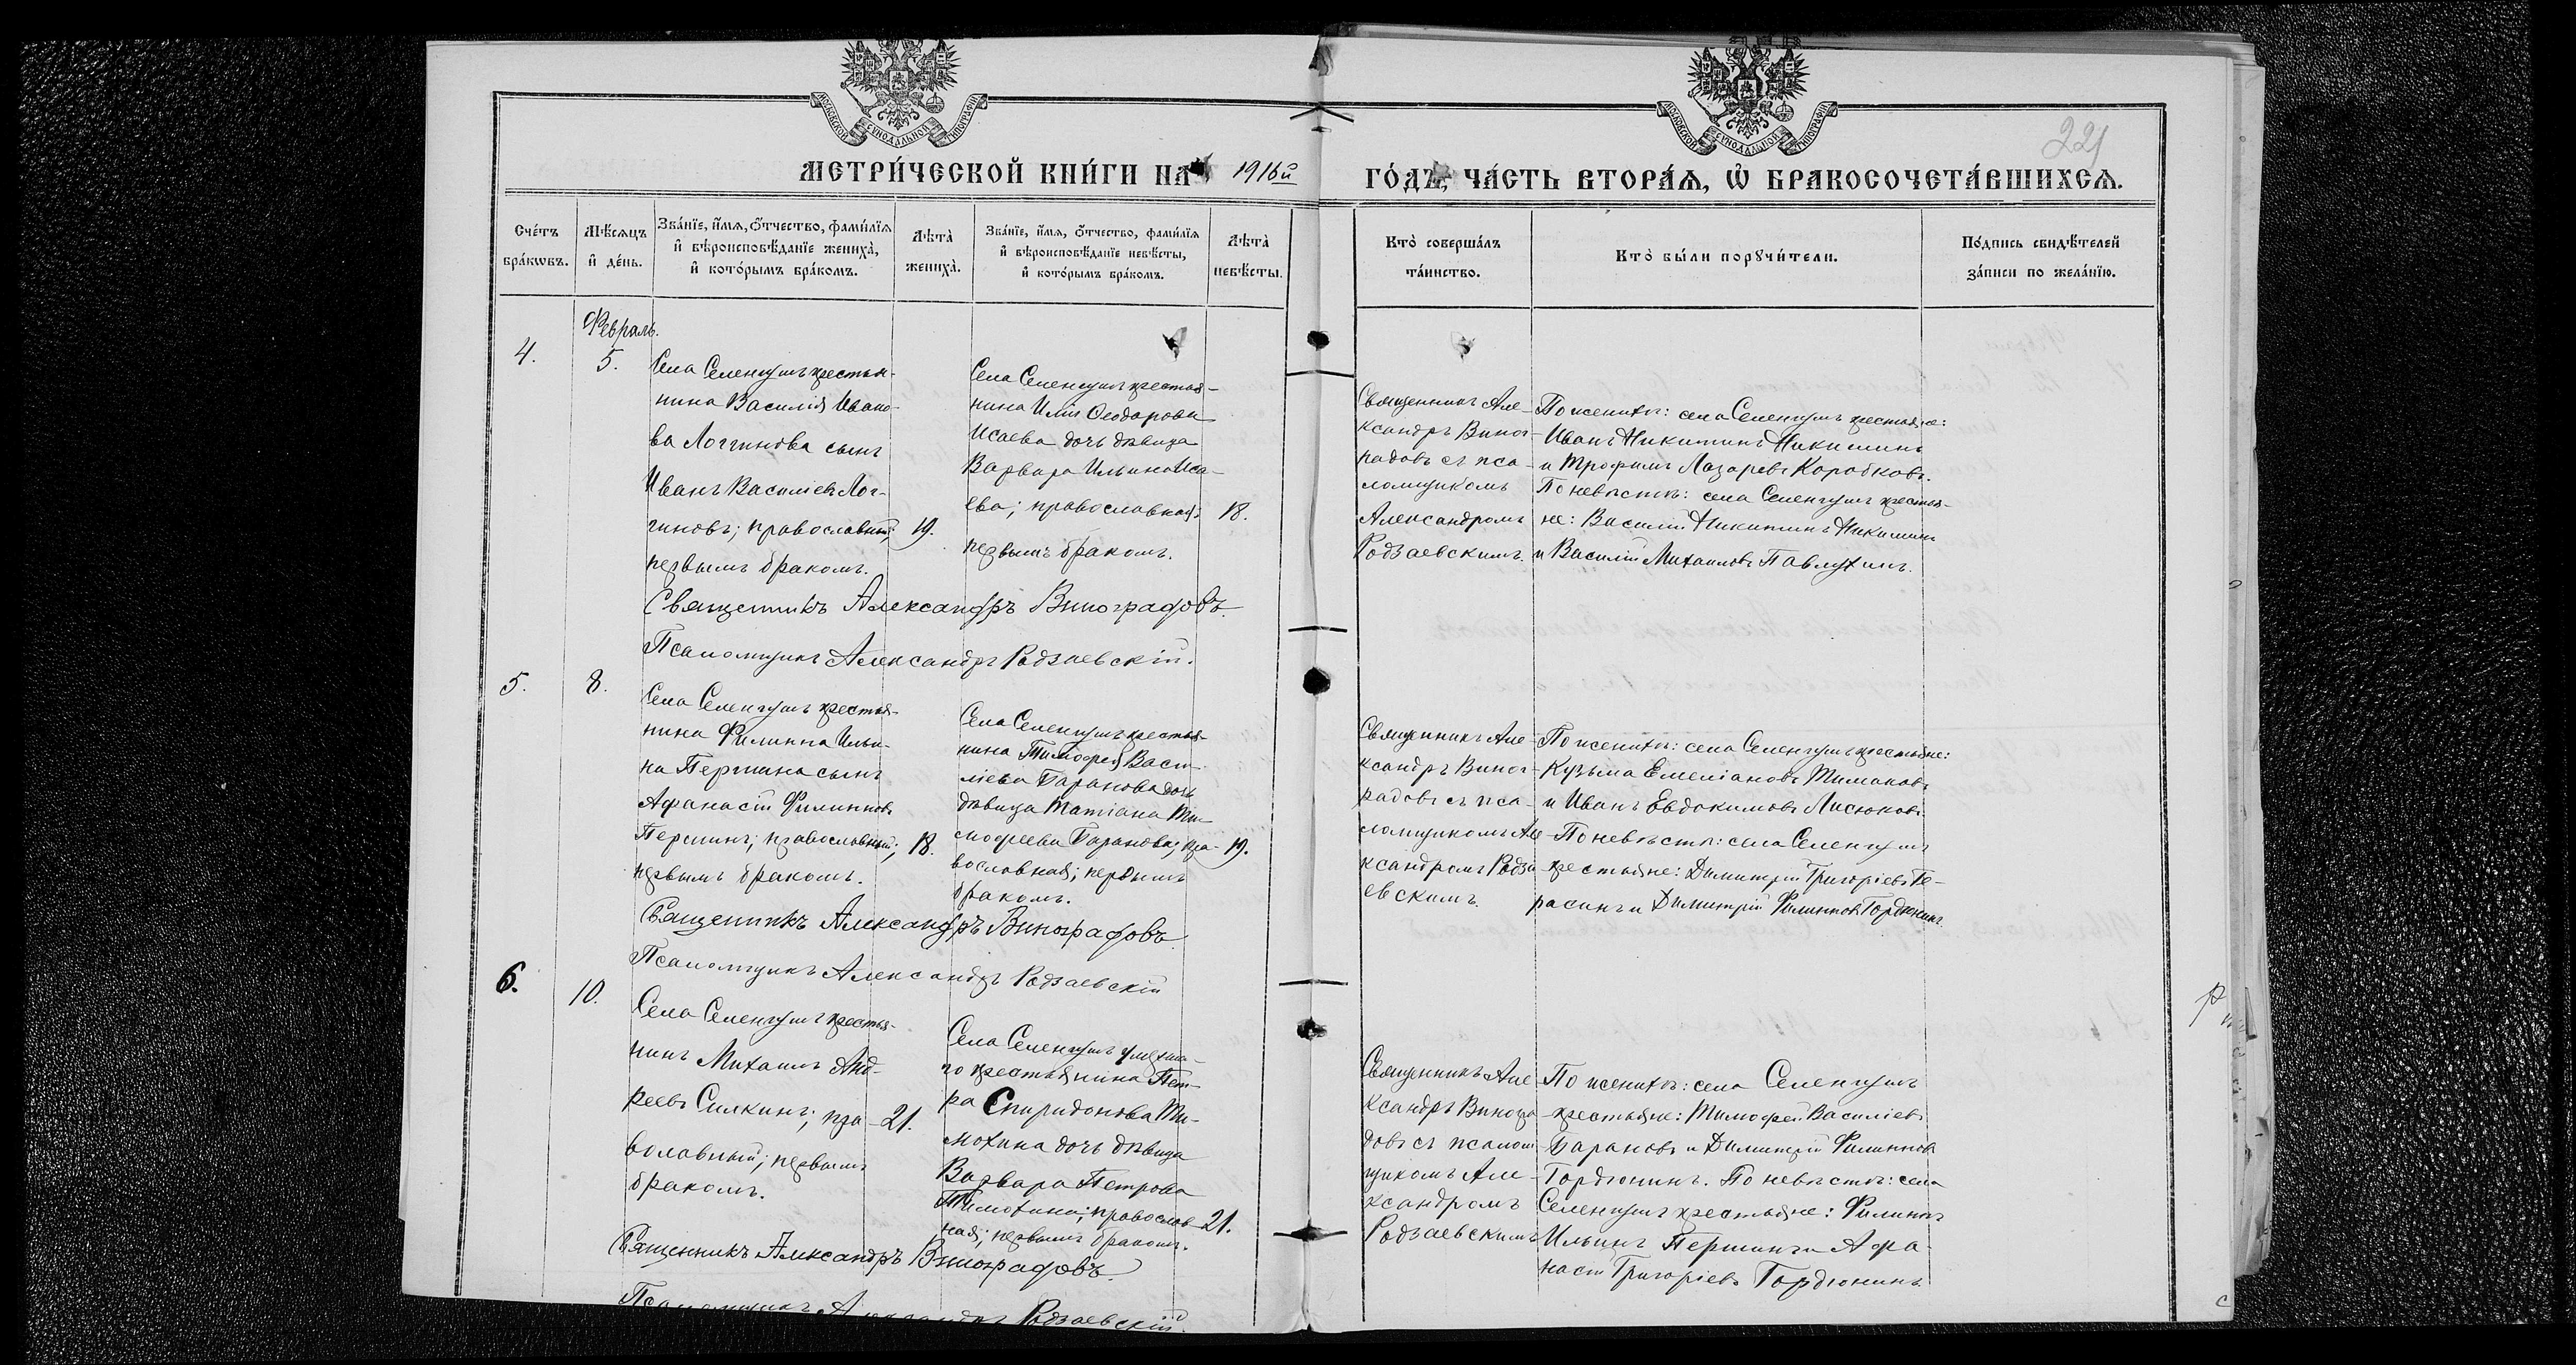 МОСКОВСКОЙ СУНОДАЛЬНОЙ ТИПОГРАФІИ
МОСКОВСКОЙ СУНОДАЛЬНОЙ ТИПОГРАФІИ
221
МЕТРИ́ЧЕСКОЙ КНИ́ГИ НА 1916й
ГО́ДЪ, ЧА́СТЬ ВТОРА́Ѧ, Ѡ҆ БРАКОСОЧЕТА́ВШИХСѦ.
Сче́тъ бра́кѡвъ.
Мѣ́сѧцъ и҆ де́нь.
Зва́нїе, и҆́мѧ, ѻ҆́тчество, фами́лїѧ и҆ вѣроисповѣ́данїе жениха̀, и҆ кото́рымъ бра́комъ.
Лѣта̀ жениха̀.
Зва́нїе, и҆́мѧ, ѻ҆́тчество, фами́лїѧ и҆ вѣроисповѣ́данїе невѣ́сты, и҆ кото́рымъ бра́комъ.
Лѣта̀ невѣ́сты.
Кто̀ соверша́лъ та́инство.
Кто̀ бы́ли порꙋчи́тели.
По́дпись свидѣ́телей за́писи по жела́нїю.
Февраль.
4.
5.
Села Селенгушъ крестья-
нина Василія Ивано-
ва Логгинова сынъ
Иванъ Василіевъ Лог-
гиновъ; православный;
первымъ бракомъ.
19.
Села Селенгушъ крестья-
нина Иліи Ѳеодорова
Исаева дочь дѣвица
Варвара Ильина Иса-
ева; православная;
первымъ бракомъ.
18.
Священникъ Але-
ксандръ Виног-
радовъ съ пса-
ломщикомъ
Александромъ
Родзаевскимъ.
По женихѣ: села Селенгушъ крестьяне:
Иванъ Никитинъ Никишинъ
и Трофимъ Лазаревъ Коробковъ.
По невѣстѣ: села Селенгушъ крестья-
не: Василій Никитинъ Никишинъ
и Василій Михаиловъ Павлухинъ.
Священникъ Александръ Виноградовъ.
Псаломщикъ Александръ Родзаевскій.
5.
8.
Села Селенгушъ крестья-
нина Филиппа Ильи-
на Першина сынъ
Афанасій Филипповъ
Першинъ; православный;
первымъ бракомъ.
18.
Села Селенгушъ крестья-
нина Тимофея Васи-
ліева Баранова дочь
дѣвица Татіана Ти-
мофеева Баранова; пра-
вославная; первымъ
бракомъ.
19.
Священникъ Але-
ксандръ Виног-
радовъ съ пса-
ломщикомъ Але-
ксандромъ Родза-
евскимъ.
По женихѣ: села Селенгушъ крестьяне:
Кузьма Емеліановъ Тимаковъ
и Иванъ Евдокимовъ Лисюковъ.
По невѣстѣ: села Селенгушъ
крестьяне: Димитрій Григоріевъ Ге-
расинъ и Димитрій Филипповъ Гордюнинъ.
Священникъ Александръ Виноградовъ.
Псаломщикъ Александръ Родзаевскій
6.
10.
Села Селенгушъ крестья-
нинъ Михаилъ Анд-
реевъ Силкинъ; пра-
вославный; первымъ
бракомъ.
21.
Села Селенгушъ умерша-
го крестьянина Пет-
ра Спиридонова Ти-
мохина дочь дѣвица
Варвара Петрова
Тимохина; православ-
ная; первымъ бракомъ.
21.
Священникъ Але-
ксандръ Виногра-
довъ съ псалом-
щикомъ Але-
ксандромъ
Родзаевскимъ
По женихѣ: села Селенгушъ
крестьяне: Тимофей Василіевъ
Барановъ и Димитрій Филипповъ
Гордюнинъ. По невѣстѣ: села
Селенгушъ крестьяне: Филиппъ
Ильинъ Першинъ и Афа-
насій Григоріевъ Гордюнинъ
Священникъ Александръ Виноградовъ.
Псаломщикъ Александръ Родзаевскій.